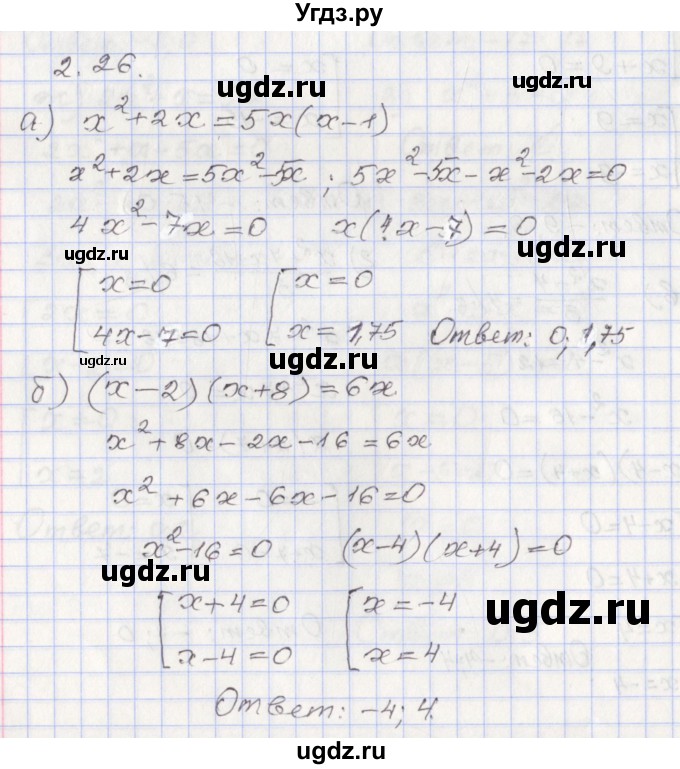 Угдз.ру
2.26.
ugdz.ru
а) x²+2x=5x(x-1)
ugdz.ru
x²+2x=5x²-5x ; 5x²-5x-x²-2x=0
4x²-7x=0 x(4x-7)=0
ugdz.ru ugdz.ru
[ x=0 [ x=0
4x-7=0 x=1,75 Ответ: 0; 1,75
ugdz.ru ugdz.ru
б) (x-2)(x+8)=6x
x²+8x-2x-16=6x
x²+6x-6x-16=0
x²-16=0 (x-4)(x+4)=0
ugdz.ru
[ x+4=0 [ x=-4
ugdz.ru
x-4=0 x=4
Ответ: -4; 4.
ugdz.ru